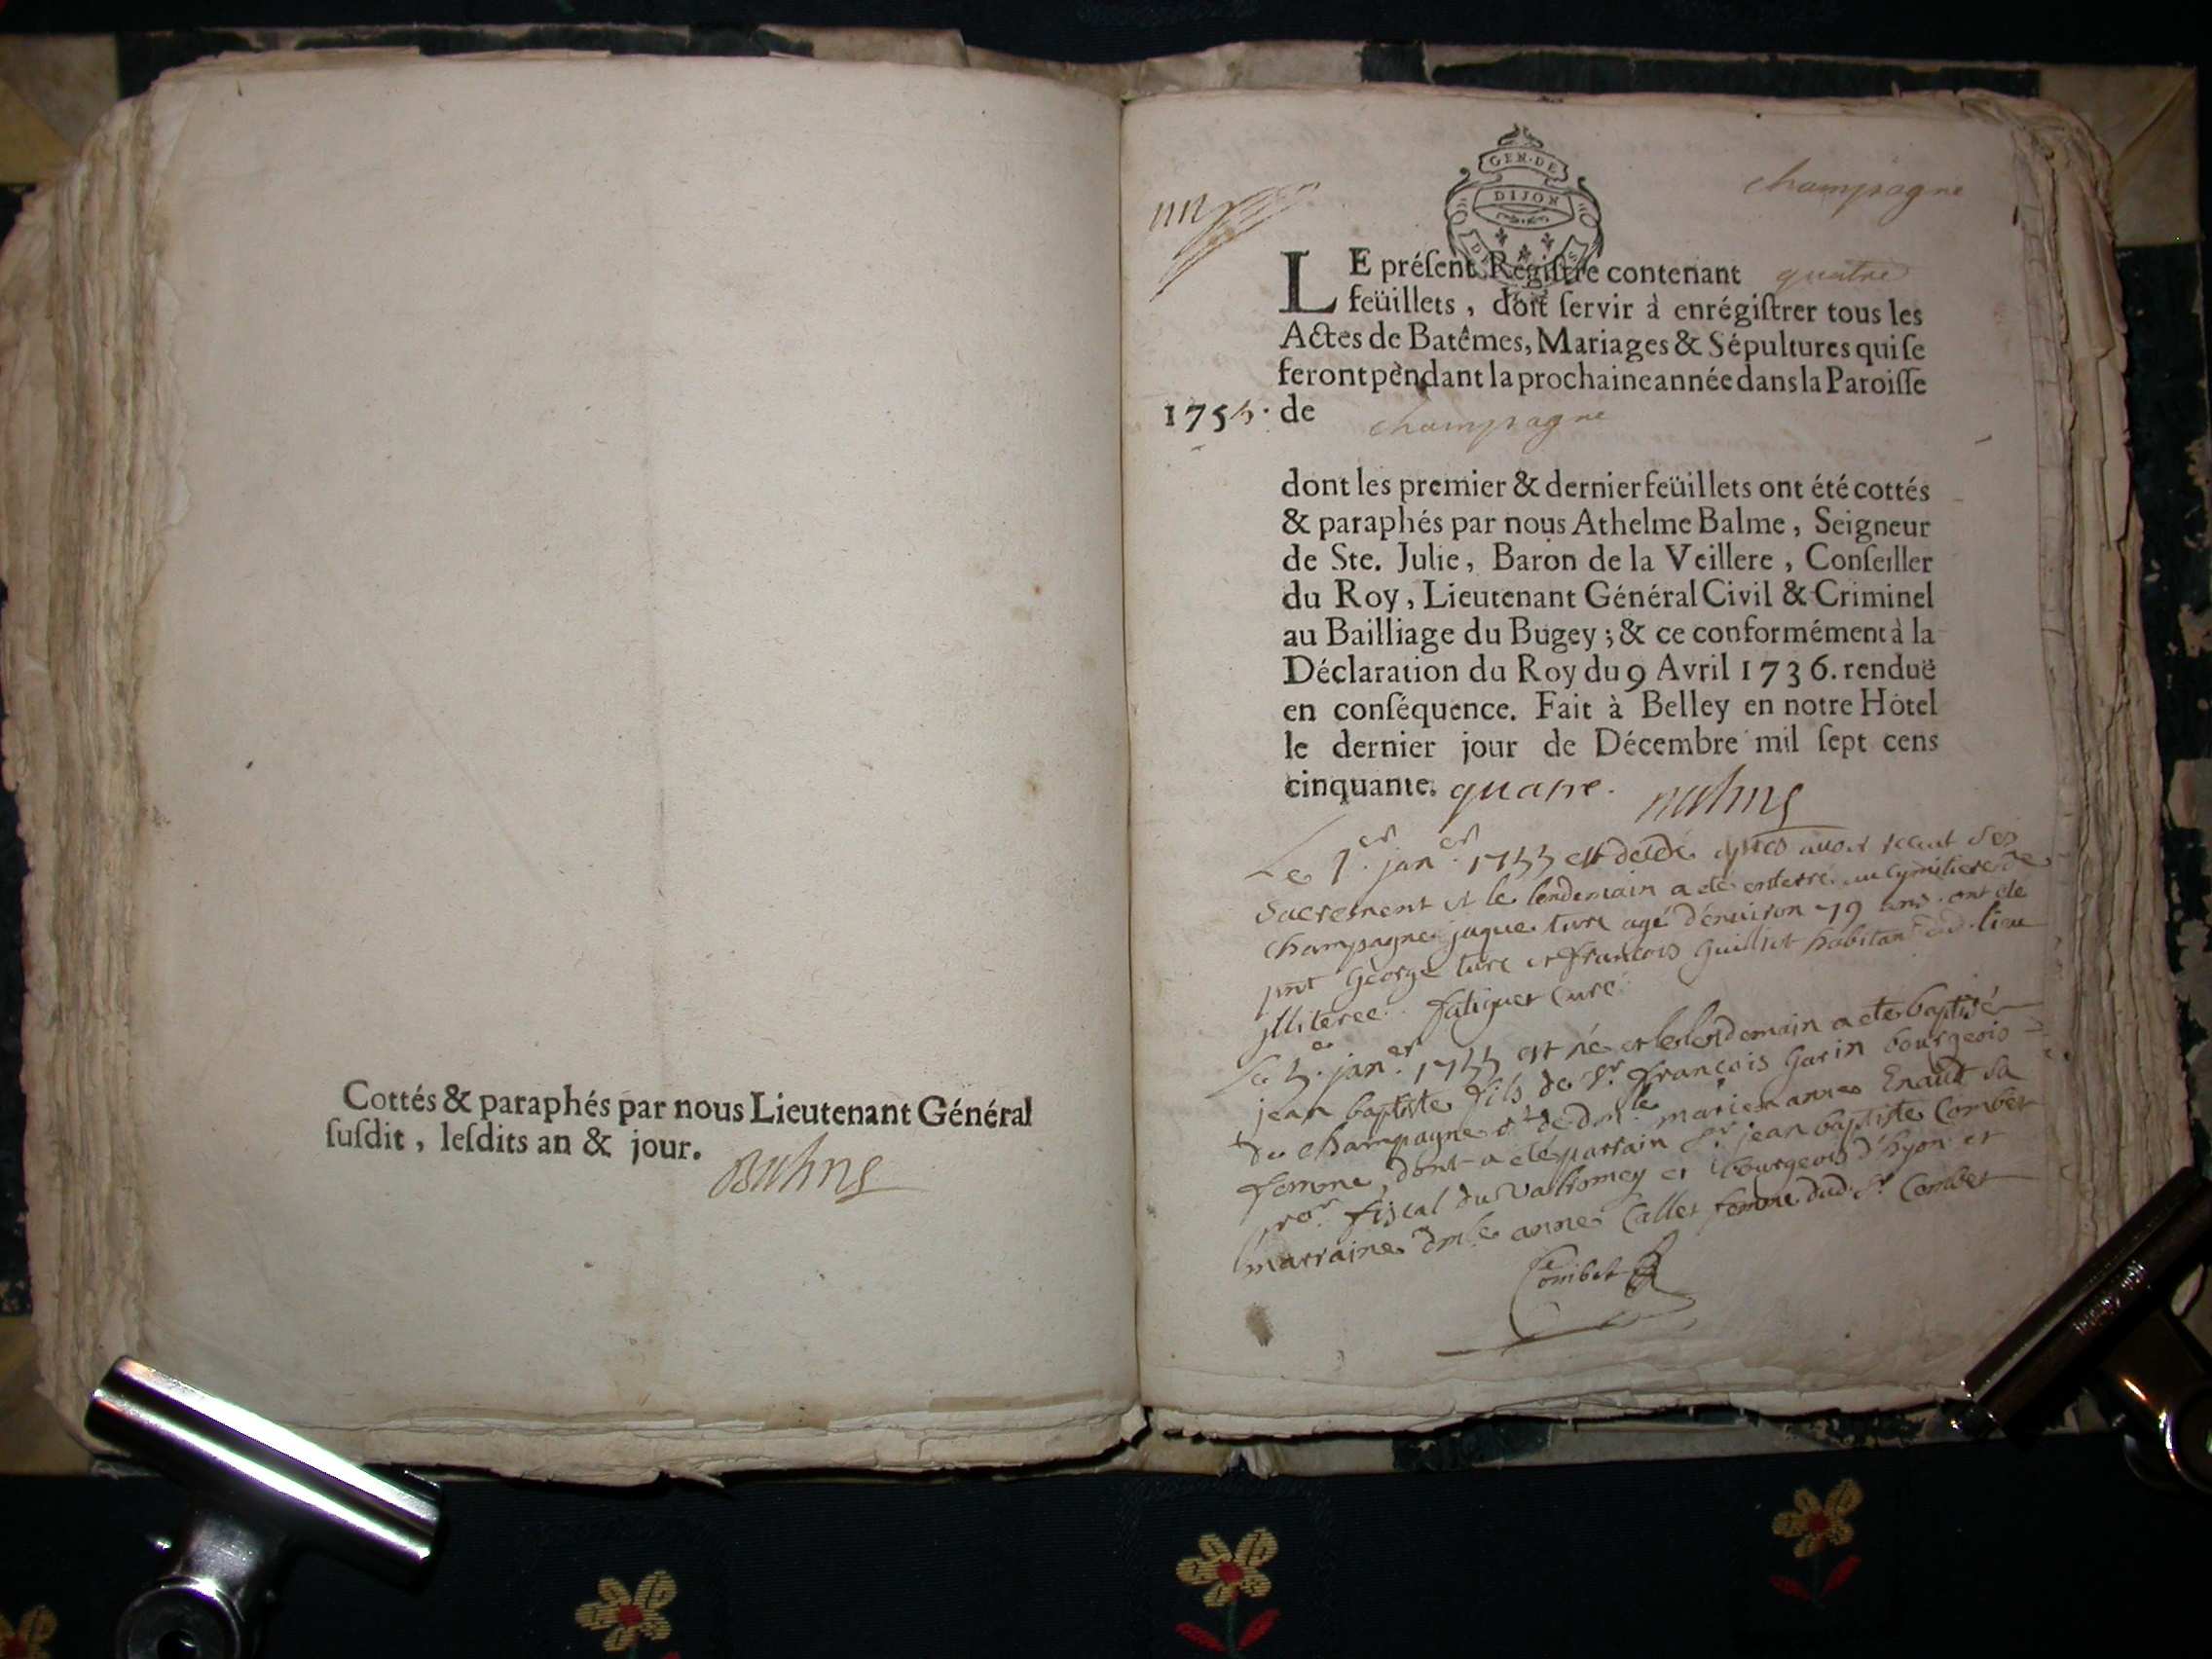 Cottés & paraphés par nous Lieutenant Général
ſuſdit, leſdits an & jour.
Balme
GEN·DE
DIJON
champagne
LE préſent Regiſtre contenant quatre
feüillets, doit ſervir à enrégiſtrer tous les
Actes de Batêmes, Mariages & Sépultures qui ſe
feront pendant la prochaine année dans la Paroiſſe
1755. de champagne
dont les premier & dernier feüillets ont été cottés
& paraphés par nous Athelme Balme, Seigneur
de Ste. Julie, Baron de la Veillere, Conſeiller
du Roy, Lieutenant Général Civil & Criminel
au Bailliage du Bugey; & ce conformément à la
Déclaration du Roy du 9 Avril 1736. renduë
en conſéquence. Fait à Belley en notre Hôtel
le dernier jour de Décembre mil ſept cens
cinquante. quatre. Balme
Le 1.er jan.er 1755 est decedé apres avoir receut ses
Sacrement et le lendemain a eté enterré au cymitiere de
champagne jaque turc agé d'environ 79 ans. ont eté
pnt George turc et françois Guillot habitant dud. lieu
jlliteree. fatiguet Curé.
Le 5.e jan.er 1755 est né et le lendemain a eté baptisé
jean baptiste fils de Sr. françois Garin bourgeois
de champagne et de dm.le marie anne Enaud sa
femme, dont a eté parrain Sr. jean baptiste Combet
pror. fiscal du Valromey et bourgeois d'hyon et
marraine dm.le anne Callet femme dud. Sr. Combet
Combet